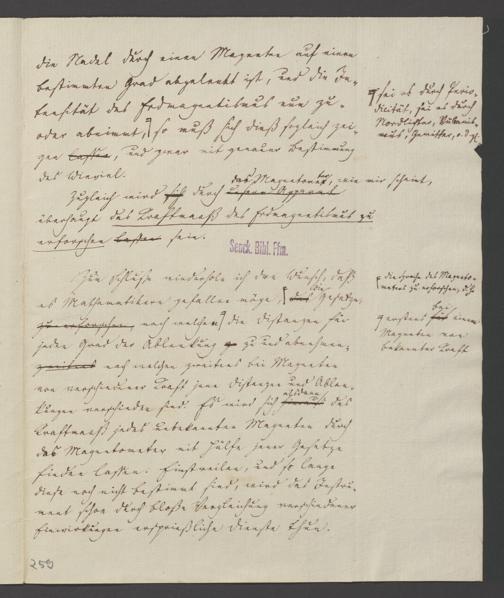 die Nadel durch einen Magneten auf einen
bestimmten Grad abgelenkt ist, und die In-
tensität des Erdmagnetismus nun zu-
oder abnimmt, so muß sich dieß sogleich zei-
gen lassen, und zwar mit genauer Bestimmung
des Wieviel.
sei es durch Perio-
dicität, sei es durch
Nordlichter, Vulkanis-
mus, Gewitter, o. dgl.
Zugleich wird sich durch das Magnetometer, wie mir scheint,
überhaupt das Kraftmaaß des Erdmagnetismus zu
erforschen lassen sein.
Senck. Bibl. Ffm.
Zum Schlusse wiederhole ich den Wunsch, daß
es Mathematikern gefallen möge, die Gesetze,
zu erforschen, nach welchen die Distanzen für
jeden Grad der Ablenkung zu und abnehmen,
nach welchen zweitens bei Magneten
von verschiedener Kraft jene Distanzen und Ablen-
kungen verschieden sind. Es wird sich alsdann das
Kraftmaaß jedes unbekannten Magneten durch
das Magnetometer mit Hülfe jener Gesetze
finden lassen. Einstweilen, und so lange
diese noch nicht bestimmt sind, wird das Instru-
ment schon durch bloße Vergleichung verschiedener
Einwirkungen ersprießliche Dienste thun.
die Sprache des Magneto-
meters zu erforschen, d. h.
bei einem
Magneten von
bekannter Kraft
259